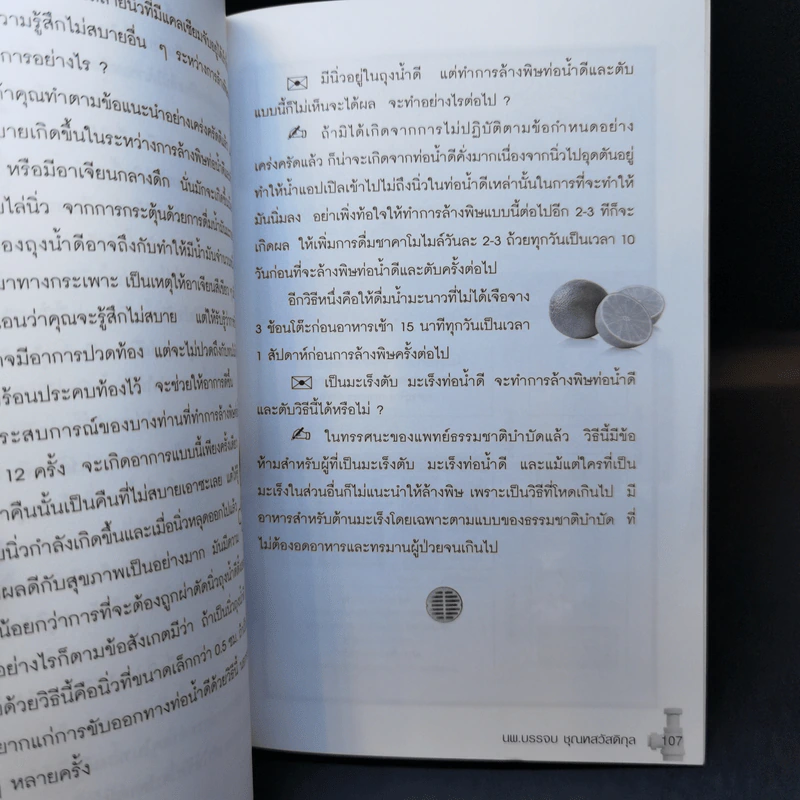 ความรู้สึกไม่สบายอื่น ๆ ระหว่างการล้างพิษ
การอย่างไร ?
คุณทำตามข้อแนะนำอย่างเคร่งครัด
เกิดขึ้นในระหว่างการล้างพิษท่อน้ำดี
หรือมีอาเจียนกลางดึก นั่นมักจะเกิด
ไล่นิ่ว จากการกระตุ้นด้วยการดื่มน้ำมัน
ของถุงน้ำดีอาจถึงกับทำให้มีน้ำมัน
มาทางกระเพาะ เป็นเหตุให้อาเจียน
ว่าคุณจะรู้สึกไม่สบาย แต่ให้รับรู้
มีอาการปวดท้อง แต่จะไม่ปวดถึง
ร้อนประคบท้องไว้ จะช่วยให้อาการดีขึ้น
ประสบการณ์ของบางท่านที่ทำการล้างพิษ
12 ครั้ง จะเกิดอาการแบบนี้เพียงครั้งเดียว
คืนนั้นเป็นคืนที่ไม่สบายเอาซะเลย
นิ่วกำลังเกิดขึ้นและเมื่อนิ่วหลุดออกไปแล้ว
ผลดีกับสุขภาพเป็นอย่างมาก มันมีความ
น้อยกว่าการที่จะต้องถูกผ่าตัดนิ่วถุงน้ำดี
อย่างไรก็ตามข้อสังเกตมีว่า ถ้าเป็นนิ่ว
ด้วยวิธีนี้คือนิ่วที่ขนาดเล็กกว่า 0.5 ซม.
ยากแก่การขับออกทางท่อน้ำดีด้วยวิธีนี้
หลายครั้ง
มีนิ่วอยู่ในถุงน้ำดี แต่ทำการล้างพิษท่อน้ำดีและตับ
แบบนี้ก็ไม่เห็นจะได้ผล จะทำอย่างไรต่อไป ?
ถ้ามิได้เกิดจากการไม่ปฏิบัติตามข้อกำหนดอย่าง
เคร่งครัดแล้ว ก็น่าจะเกิดจากท่อน้ำดีคั่งมากเนื่องจากนิ่วไปอุดตันอยู่
ทำให้น้ำแอปเปิลเข้าไปไม่ถึงนิ่วในท่อน้ำดีเหล่านั้นในการที่จะทำให้
มันนิ่มลง อย่าเพิ่งท้อใจให้ทำการล้างพิษแบบนี้ต่อไปอีก 2-3 ทีก็จะ
เกิดผล ให้เพิ่มการดื่มชาคาโมไมล์วันละ 2-3 ถ้วยทุกวันเป็นเวลา 10
วันก่อนที่จะล้างพิษท่อน้ำดีและตับครั้งต่อไป
อีกวิธีหนึ่งคือให้ดื่มน้ำมะนาวที่ไม่ได้เจือจาง
3 ช้อนโต๊ะก่อนอาหารเช้า 15 นาทีทุกวันเป็นเวลา
1 สัปดาห์ก่อนการล้างพิษครั้งต่อไป
เป็นมะเร็งตับ มะเร็งท่อน้ำดี จะทำการล้างพิษท่อน้ำดี
และตับวิธีนี้ได้หรือไม่ ?
ในทรรศนะของแพทย์ธรรมชาติบำบัดแล้ว วิธีนี้มีข้อ
ห้ามสำหรับผู้ที่เป็นมะเร็งตับ มะเร็งท่อน้ำดี และแม้แต่ใครที่เป็น
มะเร็งในส่วนอื่นก็ไม่แนะนำให้ล้างพิษ เพราะเป็นวิธีที่โหดเกินไป มี
อาหารสำหรับต้านมะเร็งโดยเฉพาะตามแบบของธรรมชาติบำบัด ที่
ไม่ต้องอดอาหารและทรมานผู้ป่วยจนเกินไป
นพ.บรรจบ ชุณหสวัสดิกุล
107